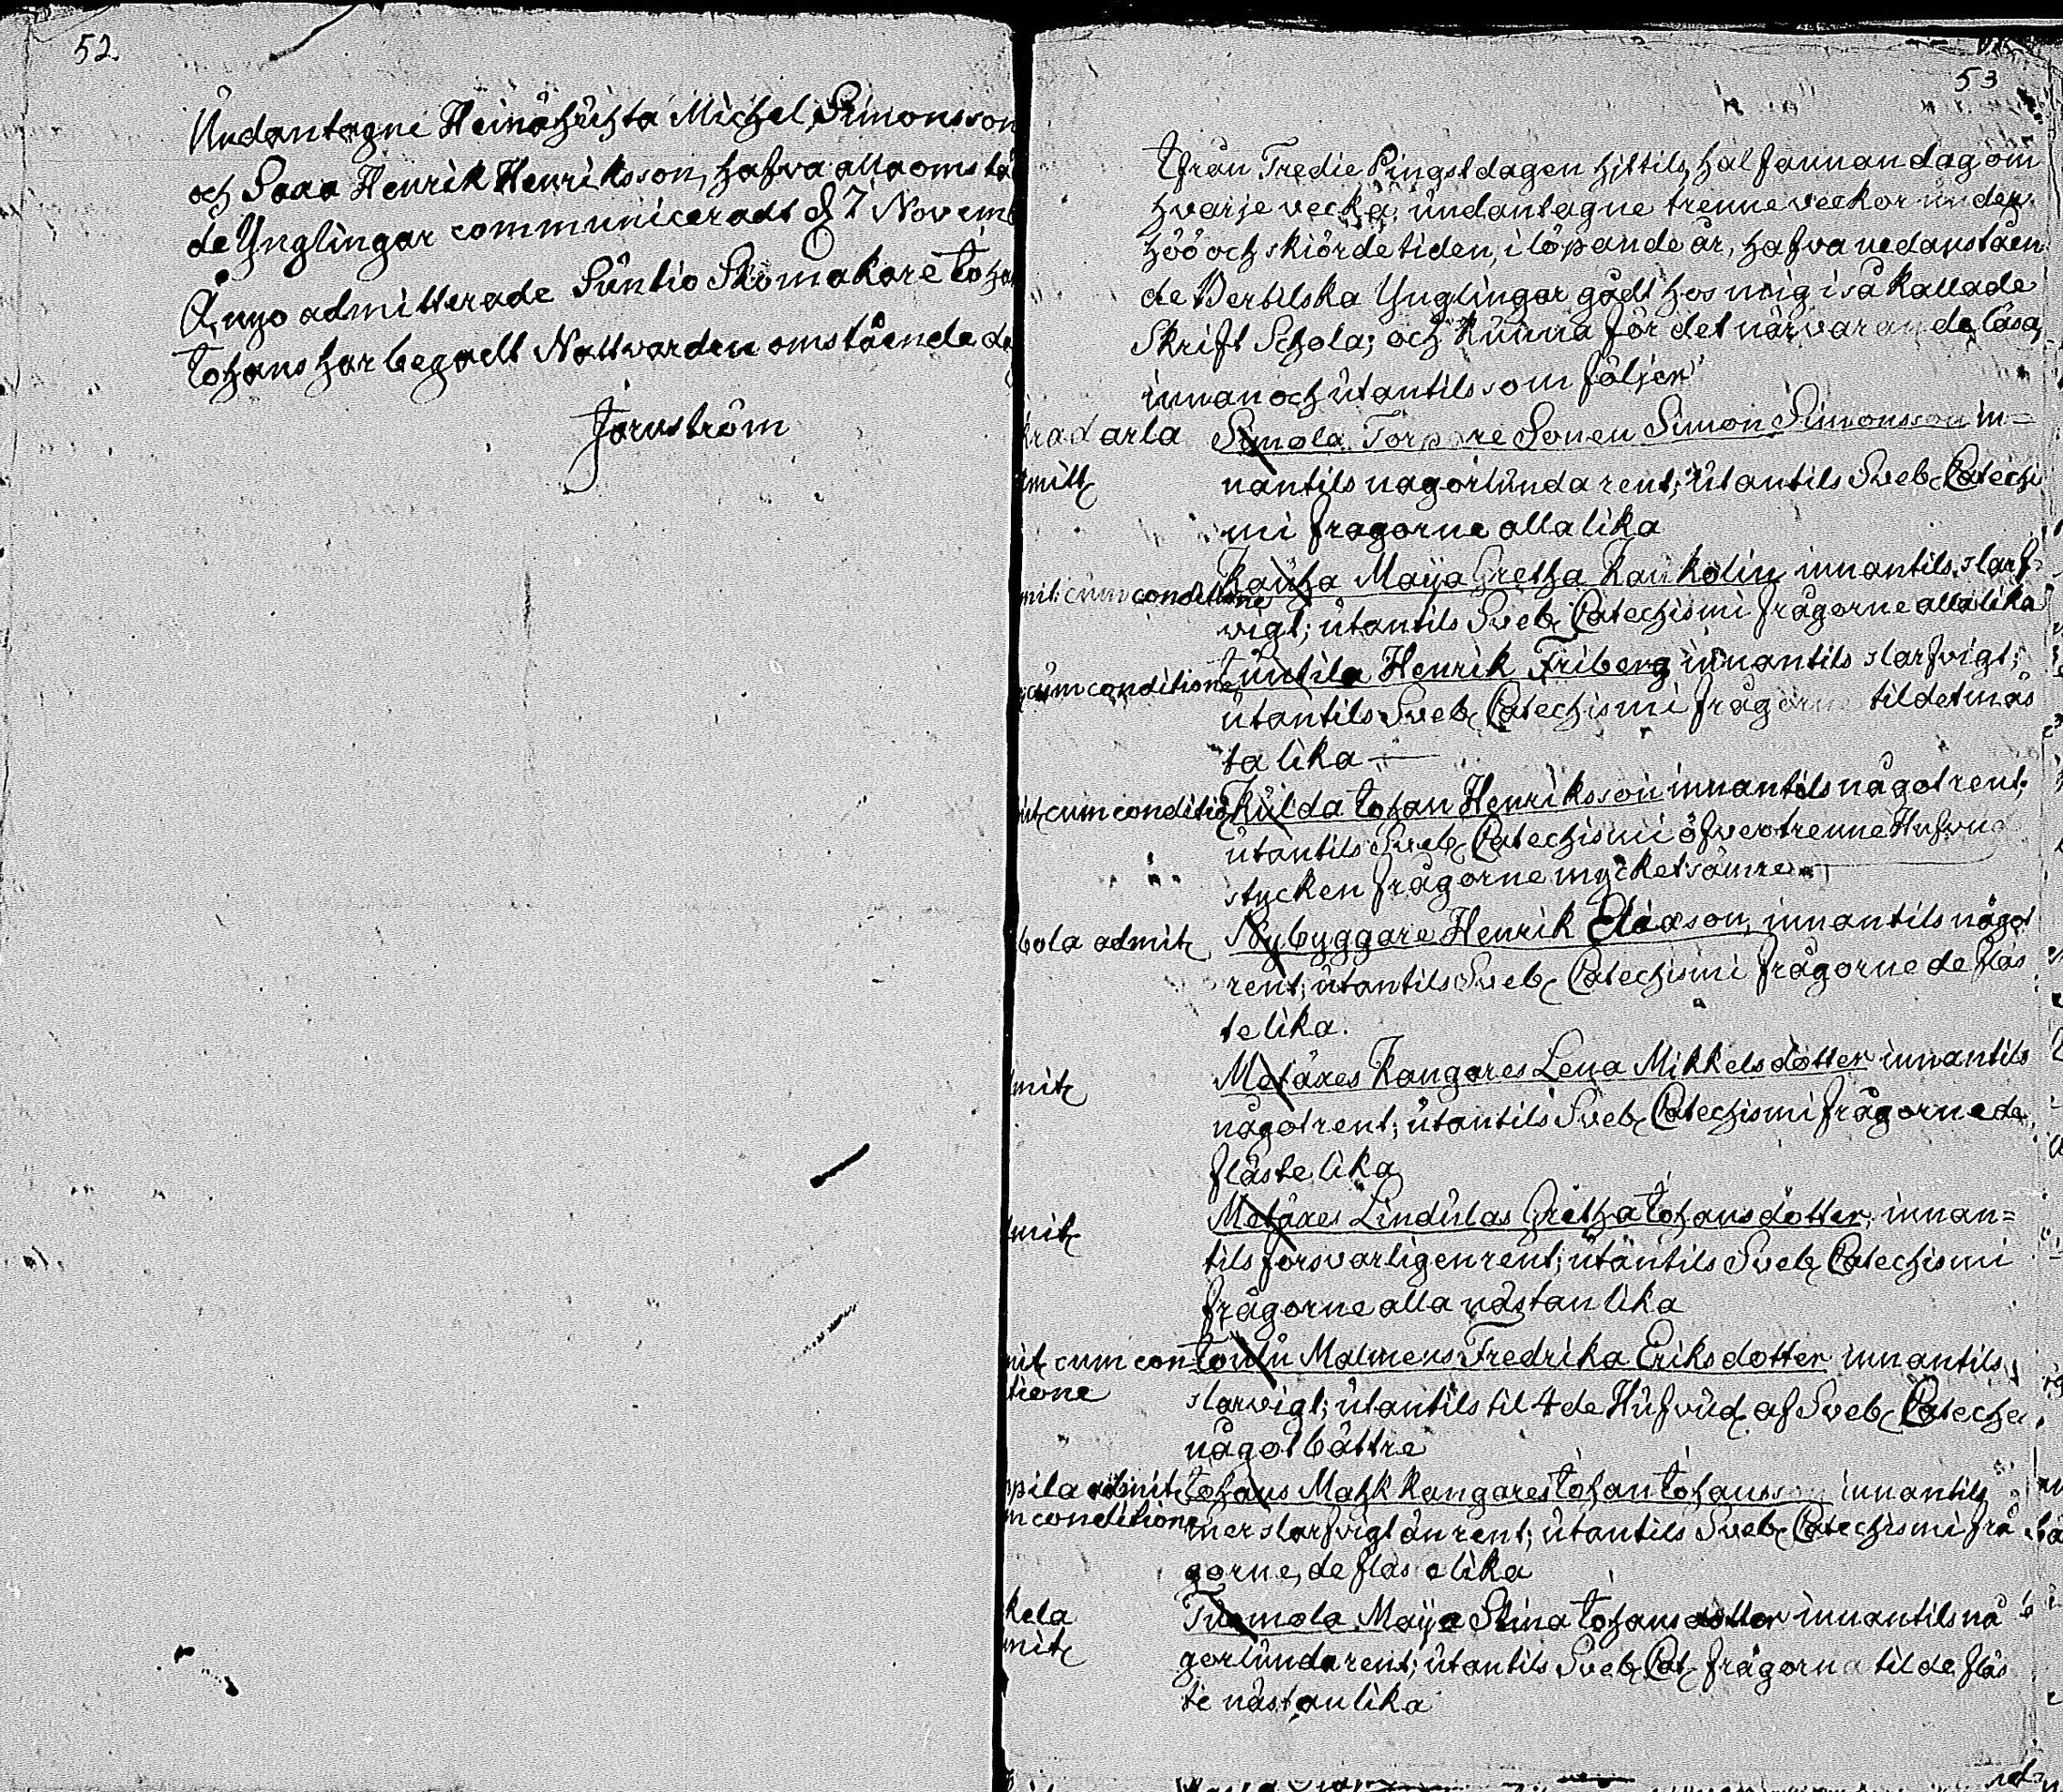 52.
Undantagne Heinähuhta Michel Simonsson
och Saaa Henrik Henriksson, hafva alla omstå
de Ynglingar communiceradt d 7 Novem
Å nyo admitterade Suntio Skomakare Joha
Johans har begådt Nattvarden omstående da
Jarnström
53
Ifrån Tredie Pingstdagen hittils, halfannan dag om
hvarje vecka; undantagne trenne veckor under
höö och skiörde tiden, i löpande år, hafva nedanståen
de Pertilska Ynglingar gådt hos mig i så kallade
Skrift Schola; och kunna för det närvarande läsa,
innan och utantils som följer
arla Simola Torpare Sonen Simon Simonsson in=
mitt nantils nagorlunda rent; utantils Sveb. Catechi
mi fragorne alla lika
Kauha Maija Gretha Kaukolin innantils slarf-
mit: cum conditione vigt; utantils Sveb. Catechismi frågorne alla lika
cum conditione Juntila Henrik Friberg innantils slarfvigt;
utantils Sveb. Catechismi frågorne til det mäs
ta lika
cum conditio Kulda Johan Henriksson innantils något rent.
utantils Sveb. Catechismi öfver trenne Hufvud
stycken frågorne mycket sämre
bola admit Nybyggare Henrik Eliasson, innantils något
rent; utantils Sveb. Catechismi frågorne de fläs
te lika.
mit Metäxes Kangares Lena Mikkelsdotter innantils
något rent; utantils Sveb. Catechismi frågorne de
fläste lika
mit Metäxes Lindulas Gretha Johansdotter, innan=
tils försvarligen rent; utantils Sveb. Catechismi
frågorne alla nästan lika
mit cum con Joulu Malmens Fredrika Eriksdotter innantils
tione slarvigt; utantils til 4de Hufvud. af Sveb. Cateche
något bättre
pila admit Johans Mahk Kangares Johan Johansson innantils
m conditione mer slarfvigt än rent; utantils Sveb. Catechismi frå
gorne, de fläste lika
kela Tuomola Maija Stina Johansdotter innantils nå
mit gorlunda rent; utantils Sveb. Cat. frågorna til de fläs
te nästan lika